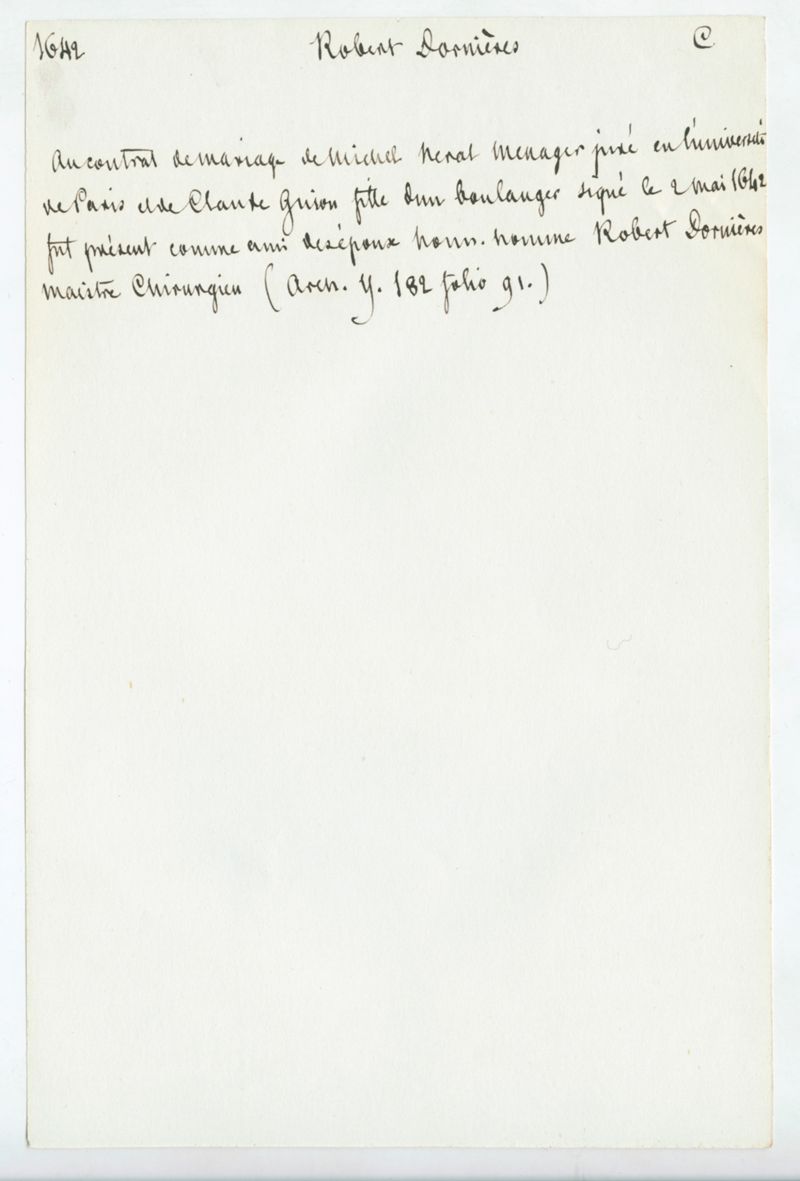 1642 Robert Dornières C
Au contrat de mariage de Michel Nerat Menager juré en l'université
de Paris et de Claude Guion fille d'un boulanger signé le 2 Mai 1642
fut présent comme ami des époux honn. homme Robert Dornières
maistre Chirurgien (Arch. Y. 182 folio 91.)